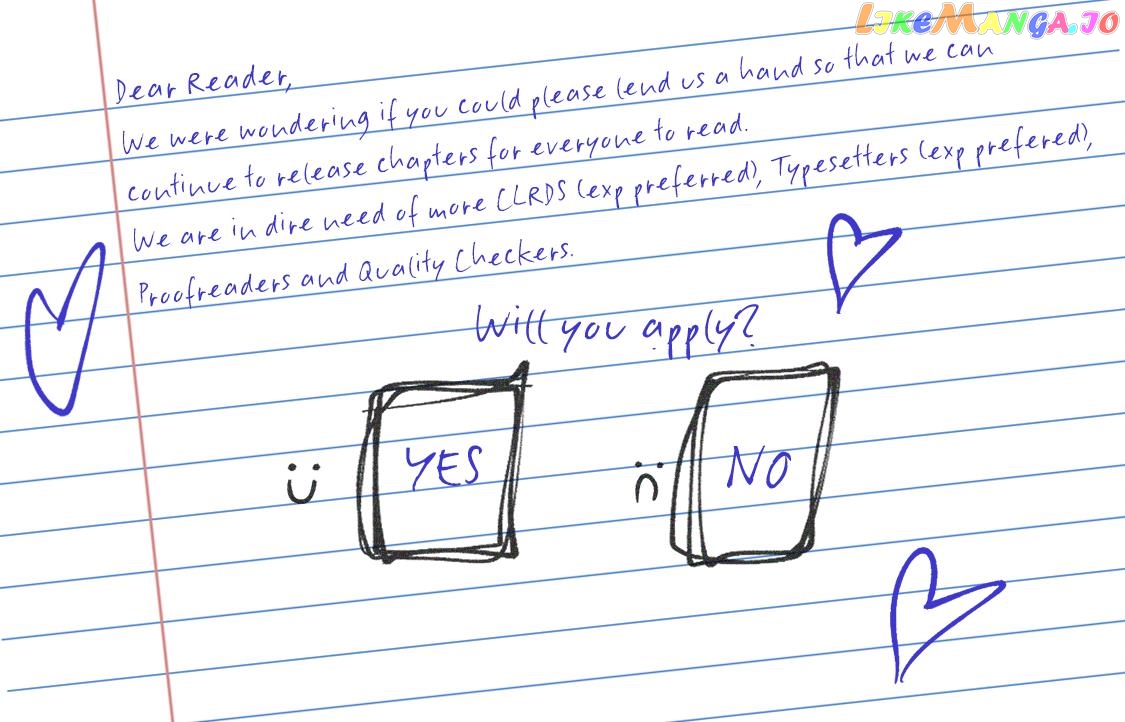 LIKEMANGA.IO
Dear Reader,
We were wondering if you could please lend us a hand so that we can
continue to release chapters for everyone to read.
We are in dire need of more CLRDS (exp preferred), Typesetters (exp prefered),
Proofreaders and Quality Checkers.
Will you apply?
YES
NO